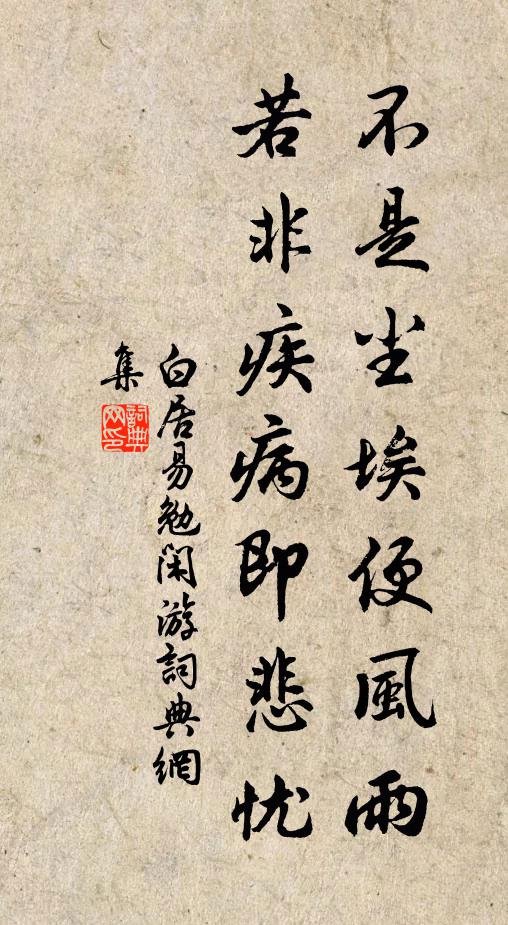 不是尘埃便風雨
若非疾病即悲忧
白居易勉闲游詞典網
集
詞典
网印